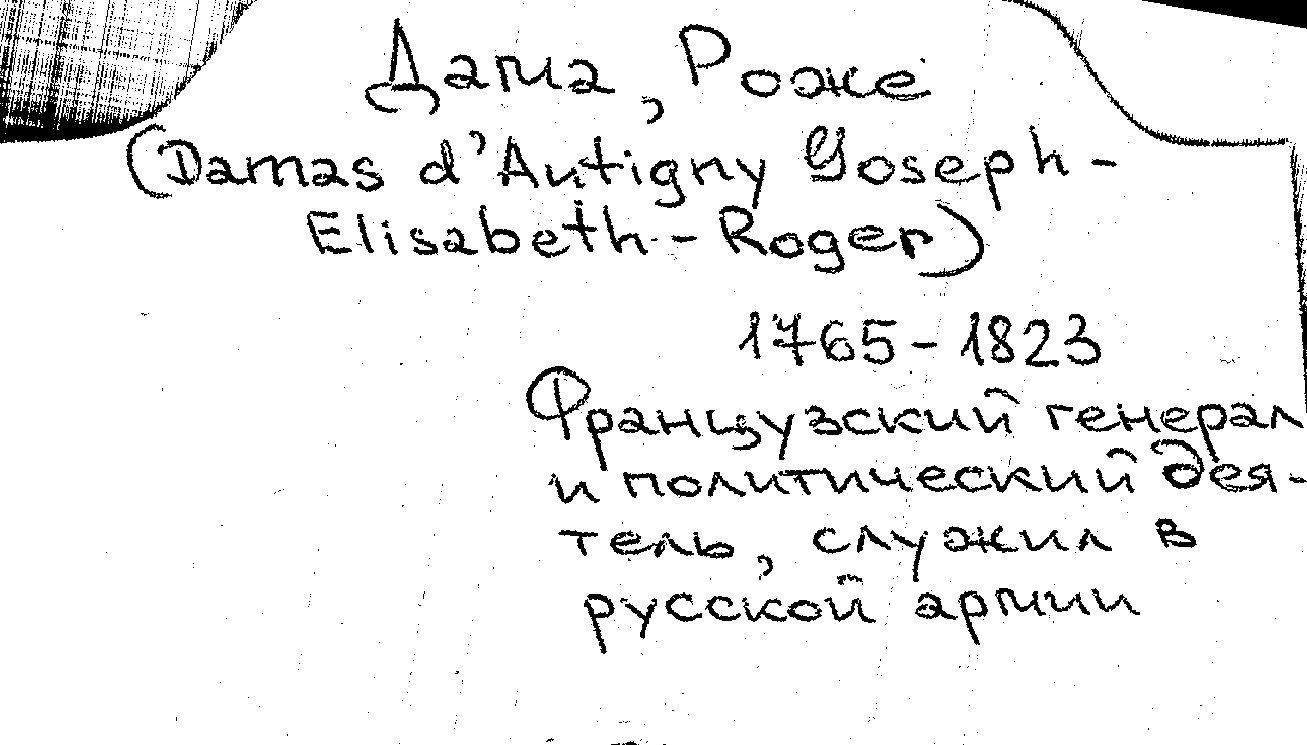 Дама, Роже
(Damas d'Antigny Joseph-
Elisabeth-Roger)
1765-1823
Французский генерал
и политический дея-
тель, служил в
русской армии